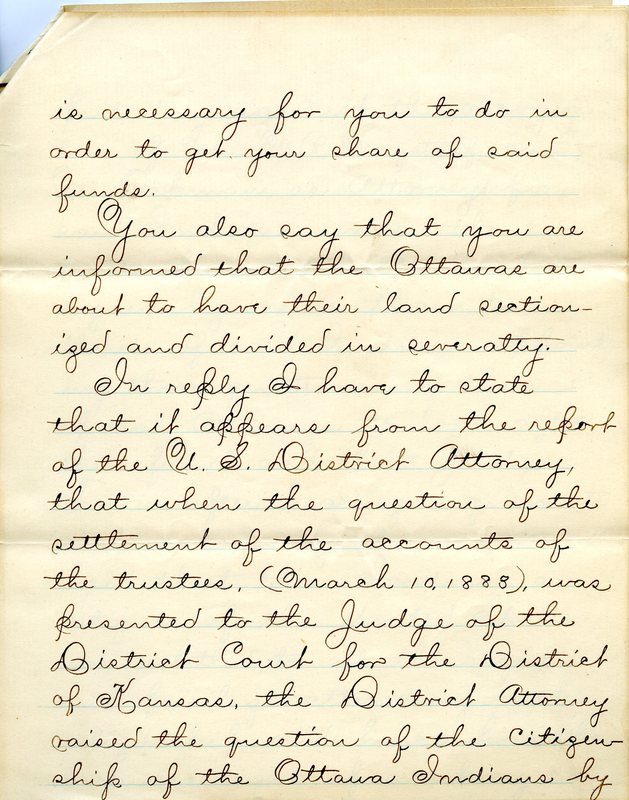 is necessary for you to do in
order to get your share of said
funds.
You also say that you are
informed that the Ottawas are
about to have their land section-
ized and divided in severalty.
In reply I have to state
that it appears from the report
of the U. S. District Attorney,
that when the question of the
settlement of the accounts of
the trustees, (March 10, 1883), was
presented to the Judge of the
District Court for the District
of Kansas, the District Attorney
raised the question of the citizen-
ship of the Ottawa Indians by